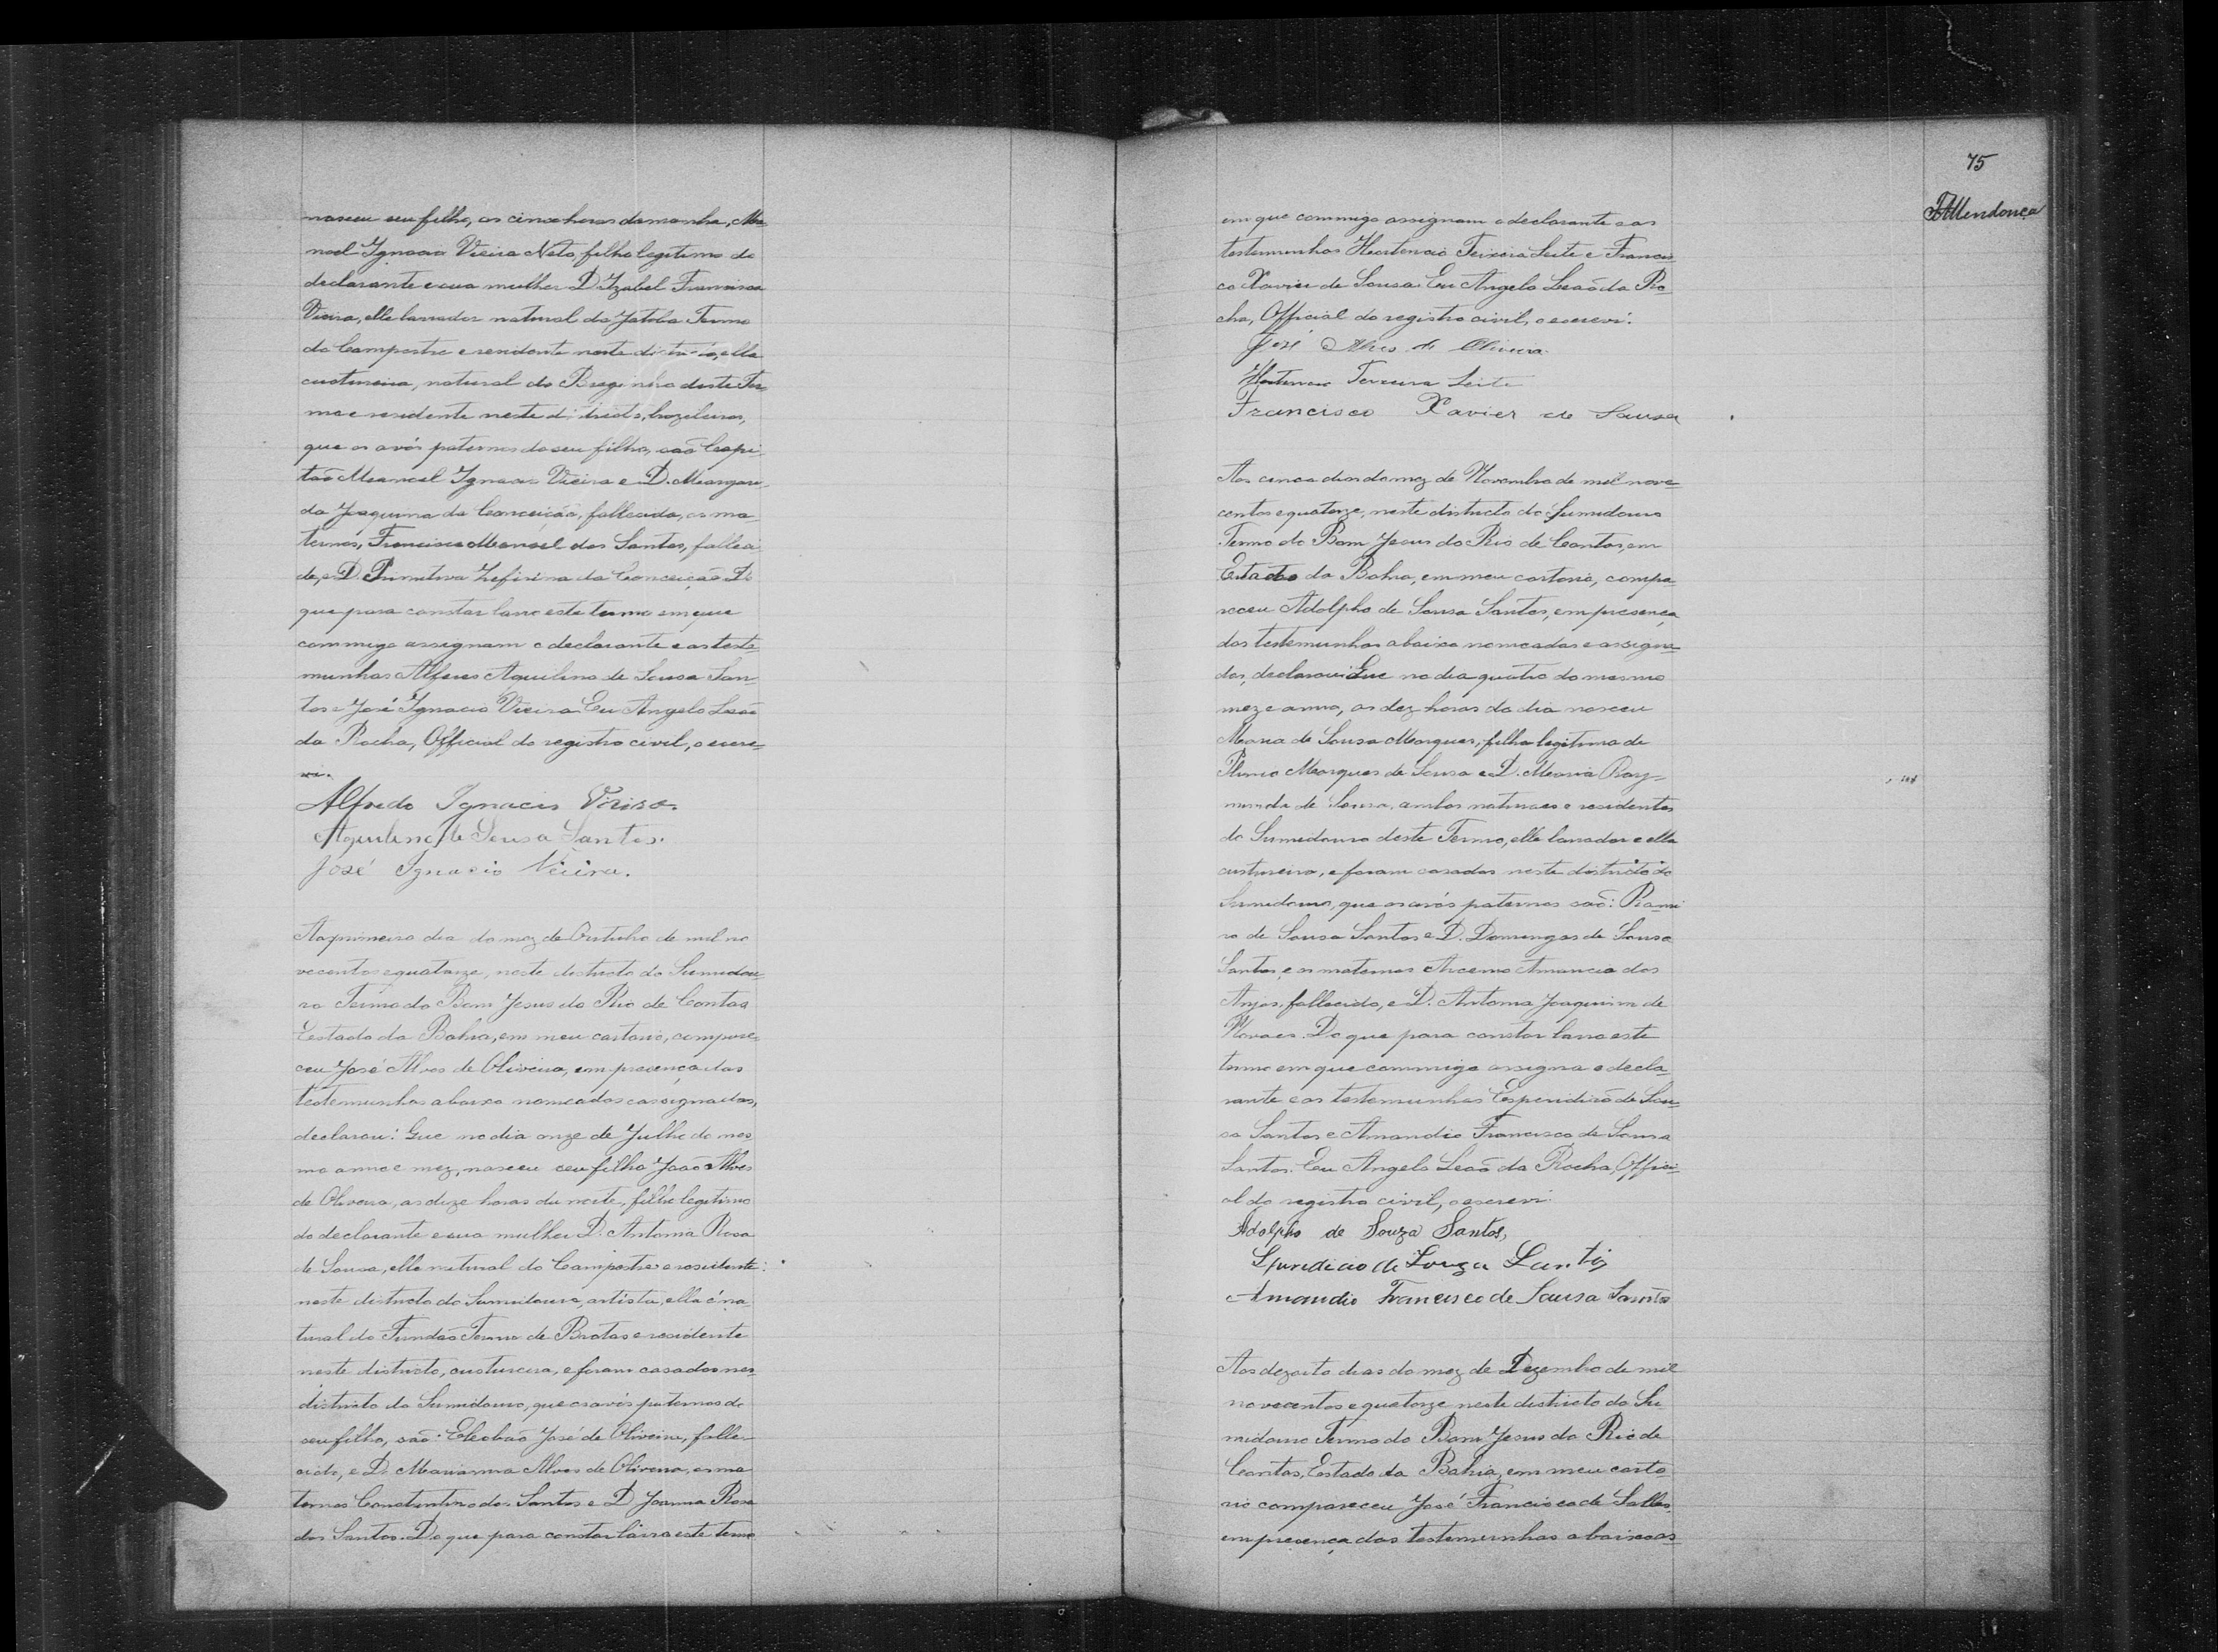 nasceu seu filho, as cinco horas da manha, Ma-
noel Ignacio Vieira Neto, filho legitimo do
declarante e sua mulher D. Izabel Francisca
Vieira, elle lavrador natural do Jatoba Termo
do Campestre e residente neste districto, ella
custureira, natural do Breginho deste Ter-
mo e residente neste districto, brazileiros,
que os avós paternos do seu filho, saõ Capi-
taõ Manoel Ignacio Vieira e D. Margari-
da Joaquina da Conceiçaõ, fallecida, os ma-
ternos, Francisco Manoel dos Santos, falleci
do, e D. Primitiva Zefirina da Conceiçaõ. Do
que para constar lavro este termo em que
commigo assignam o declarante e as teste-
munhas Alferes Aquilino de Sousa San-
tos e José Ignacio Vieira Eu Angelo Leaõ
da Rocha, Official do registro civil, o escre-
vi.
Alfredo Ignacio Vieira.
Aquilino de Sousa Santos.
José Ignacio Vieira.
Ao primeiro dia do mez de Outubro de mil no
vecentos e quatorze, neste districto do Sumidou-
ro Termo do Bom Jesus do Rio de Contas
Estado da Bahia, em meu cartorio, compare-
ceu José Alves de Oliveira, em presença das
testemunhas abaixo nomeadas e assignadas,
declarou: Que no dia onze de Julho do mes-
mo anno e mez, nasceu seu filho Joaõ Alves
de Oliveira, as doze horas da noite, filho legitimo
do declarante e sua mulher D. Antonia Rosa
de Sousa, elle natural do Campestre e residente
neste districto do Sumidouro, artista, ella é na-
tural do Fundaõ Termo de Brotas e residente
neste districto, custureira, e foram casados nes-
districto do Sumidouro, que os avós paternos de
seu filho, saõ: José de Oliveira, falle-
cido, e D. Marianna Alves de Oliveira, os ma
ternos Constantino dos Santos e D. Joanna Rosa
dos Santos. Do que para constar lavro este termo
75
Mendonça
em que commigo assignam o declarante e as
testemunhas Hortencio Teixeira Leite e Francis-
co Xavier de Sousa. Eu Angelo Leaõ da Ro-
cha, Official do registro civil, o escrevi.
José Alves de Oliveira
Hortencio Teixeira Leite
Francisco Xavier de Sousa
Aos cinco dias do mez de Novembro de mil nove-
centos e quatorze, neste districto do Sumidouro
Termo do Bom Jesus do Rio de Contas, em
Estado da Bahia, em meu cartorio, compa-
receu Adolpho de Sousa Santos, em presença
das testemunhas abaixo nomeadas e assigna-
das, declarou: Que no dia quatro do mesmo
mez e anno, as dez horas do dia nasceu
Maria de Sousa Marques, filha legitima de
Plinio Marques de Sousa e D. Maria Ray-
munda de Sousa, ambos naturaes e residentes
do Sumidouro deste Termo, elle lavrador e ella
custureira, e foram casados neste districto do
Sumidouro, que os avós paternos saõ: Rami
ro de Sousa Santos e D. Domingas de Sousa
Santos, e os maternos Amancio dos
Anjos, fallecido, e D. Antonia Joaquina de
Novaes. Do que para constar lavro este
termo em que commigo assigna o decla-
rante e as testemunhas Esperidiaõ de Sou-
sa Santos e Amandio Francisco de Sousa
Santos. Eu Angelo Leaõ da Rocha, Offici-
al do registro civil, o escrevi.
Adolpho de Souza Santos,
Spiridiaõ de Souza Santos
Amandio Francisco de Sousa Santos
Aos dezoito dias do mez de Dezembro de mil
novecentos e quatorze neste districto do Su
midouro Termo do Bom Jesus do Rio de
Contas, Estado da Bahia, em meu carto
rio compareceu José Francisco de Salles,
em presença das testemunhas abaixo as-